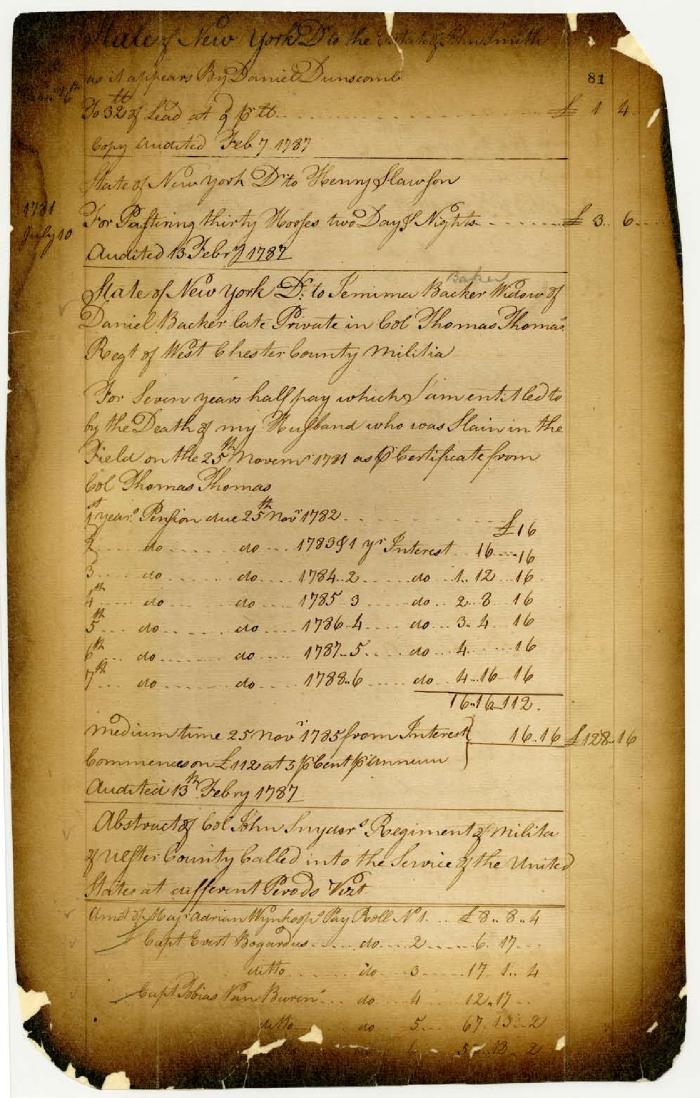 State of New York Dr to the Estate of John Smith
as it appears By Daniel Dunscomb
81
To 32 lb of Lead at 9 p lb £ 1 4
Copy Audited Feb 7 1787
State of New York Dr to Henny Slawson
1781
July 10
For Pasturing thirty Horses two Days & Nights £ 3 6
Audited 13 Febry 1787
Baker
State of New York Dr to Jemima Backer Widow of
Daniel Backer late Private in Col Thomas Thomas
Regt of West Chester County Militia
For Seven years half pay which I am entitled to
by the Death of my Husband who was Slain in the
Field on the 25th Novemr 1781 as p Certificate from
Col Thomas Thomas
1st years Pension due 25th Novr 1782 £16
2 do do 1783 & 1 yr Interest 16 16
3 do do 1784 2 do 1 12 16
4th do do 1785 3 do 2 8 16
5th do do 1786 4 do 3 4 16
6th do do 1787 5 do 4 16
7th do do 1788 6 do 4 16 16
16 16 112
medium time 25 Novr 1785 from Interest 16.16 £128.16
Commences on £112 at 5 p Cent p annum
Audited 13th Febry 1787
Abstract of Col John Snyders Regiment of Militia
of Ulster County Called into the Service of the United
States at different Perods Vizt
Amt of Majr Adrian Wynkoops Pay Roll No 1 £8 8 4
Capt Evert Bogardus do 2 6 17
ditto do 3 17 1 4
Capt Tobias Van Buren do 4 12 17
ditto do 5 67 13 2